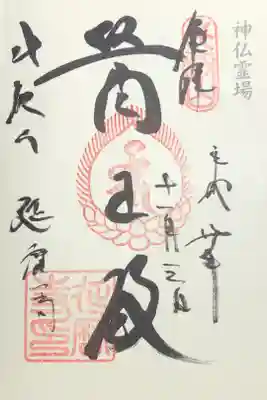 神仏霊場
奉拝
十一月三日
醫王殿
比叡山 延暦寺